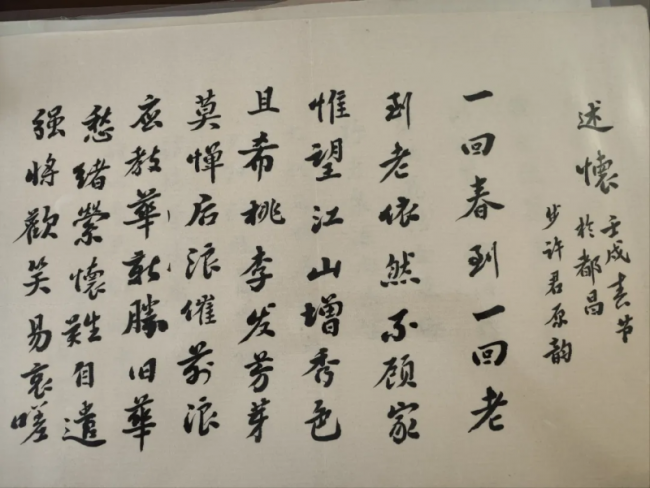 述怀
壬戌春节
于都昌
步许君原韵
一回春到一回老
到老依然不顾家
惟望江山增秀色
且希桃李发芳芽
莫惮后浪催前浪
应教华新胜旧华
愁绪萦怀难自遣
强将欢笑易哀嗟